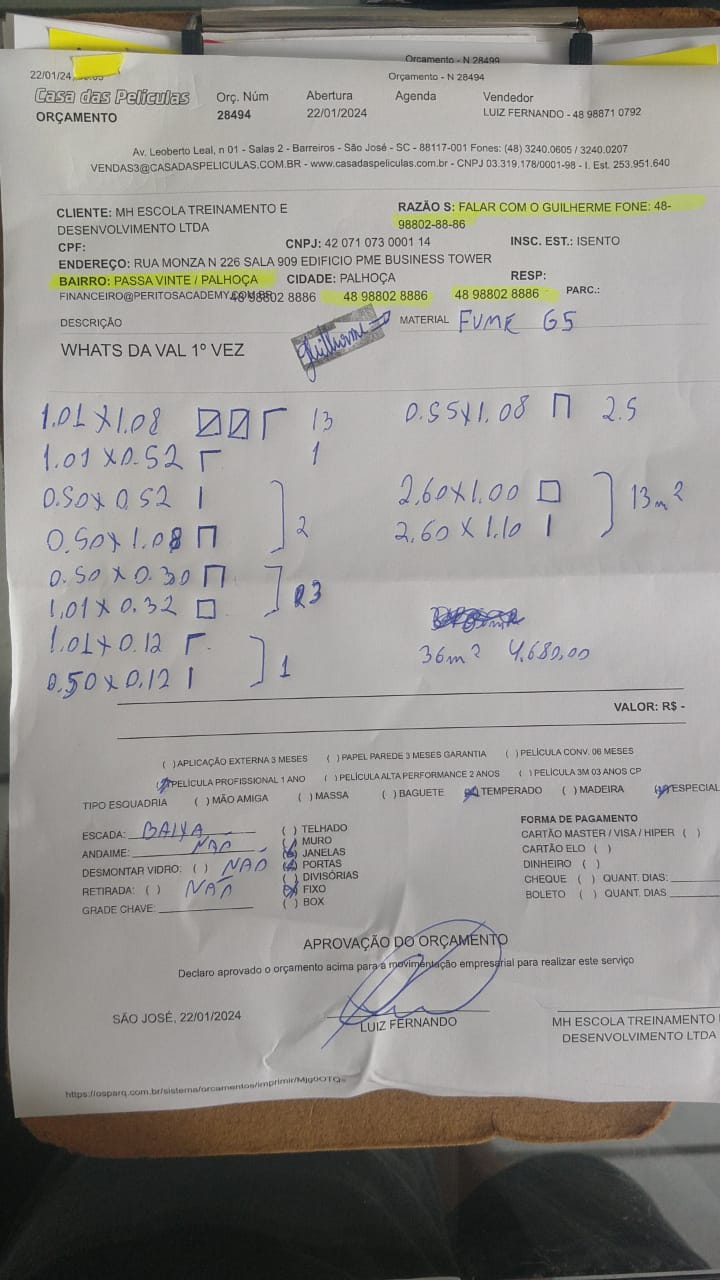 Orcamento - N 28499
22/01/24,
Orçamento - N 28494
Casa das Películas
Orç. Núm
Abertura
Agenda
Vendedor
ORÇAMENTO
28494
22/01/2024
LUIZ FERNANDO - 48 98871 0792
Av. Leoberto Leal, n 01 - Salas 2 - Barreiros - São José - SC - 88117-001 Fones: (48) 3240.0605 / 3240.0207
VENDAS3@CASADASPELICULAS.COM.BR - www.casadaspeliculas.com.br - CNPJ 03.319.178/0001-98 - I. Est. 253.951.640
CLIENTE: MH ESCOLA TREINAMENTO E
DESENVOLVIMENTO LTDA
RAZÃO S: FALAR COM O GUILHERME FONE: 48-
98802-88-86
CPF:
CNPJ: 42 071 073 0001 14
INSC. EST.: ISENTO
ENDEREÇO: RUA MONZA N 226 SALA 909 EDIFICIO PME BUSINESS TOWER
BAIRRO: PASSA VINTE / PALHOÇA
CIDADE: PALHOÇA
RESP:
FINANCEIRO@PERITOSACADEMY.COM.BR
48 98802 8886
48 98802 8886
48 98802 8886
PARC.:
DESCRIÇÃO
Guilherme
MATERIAL FUME G5
WHATS DA VAL 1º VEZ
1.01 X 1.08 13
0.55 X 1.08 2.5
1.01 X 0.52 1
0.50 X 0.52
2.60 X 1.00
0.50 X 1.08
2
2.60 X 1.10
13m²
0.50 X 0.30
1.01 X 0.32
3
1.01 X 0.12
0.50 X 0.12
1
36m² 4.680,00
VALOR: R$ -
( ) APLICAÇÃO EXTERNA 3 MESES ( ) PAPEL PAREDE 3 MESES GARANTIA ( ) PELÍCULA CONV. 06 MESES
(X) PELÍCULA PROFISSIONAL 1 ANO ( ) PELÍCULA ALTA PERFORMANCE 2 ANOS ( ) PELÍCULA 3M 03 ANOS CP
TIPO ESQUADRIA ( ) MÃO AMIGA ( ) MASSA ( ) BAGUETE (X) TEMPERADO ( ) MADEIRA (X) ESPECIAL
ESCADA: BAIXA
ANDAIME: NÃO
DESMONTAR VIDRO: ( ) NÃO
RETIRADA: ( ) NÃO
GRADE CHAVE:
( ) TELHADO
( ) MURO
(X) JANELAS
(X) PORTAS
( ) DIVISÓRIAS
(X) FIXO
( ) BOX
FORMA DE PAGAMENTO
CARTÃO MASTER / VISA / HIPER ( )
CARTÃO ELO ( )
DINHEIRO ( )
CHEQUE ( ) QUANT. DIAS:
BOLETO ( ) QUANT. DIAS
APROVAÇÃO DO ORÇAMENTO
Declaro aprovado o orçamento acima para a movimentação empresarial para realizar este serviço
SÃO JOSÉ, 22/01/2024
LUIZ FERNANDO
MH ESCOLA TREINAMENTO
DESENVOLVIMENTO LTDA
https://osparq.com.br/sistema/orcamentos/imprimir/Mjg0OTQ=